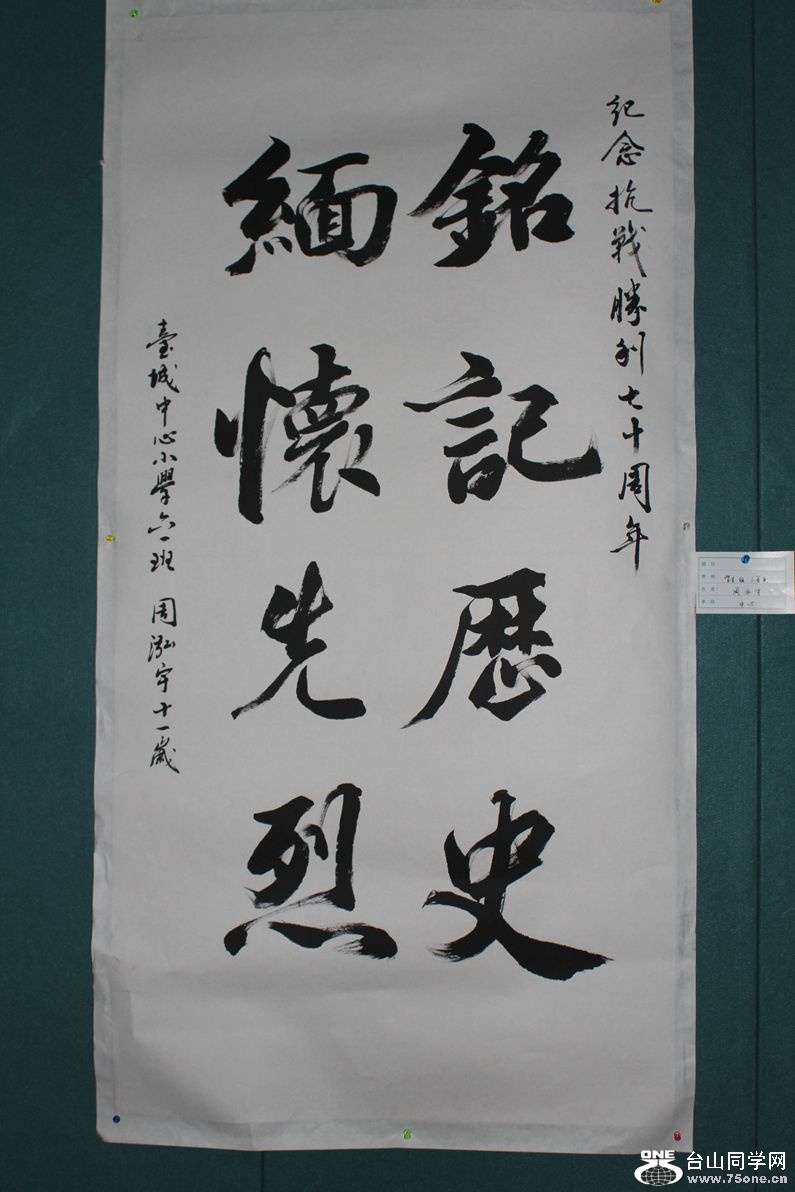 紀念抗戰勝利七十周年
銘記歷史
緬懷先烈
臺城中心小學六一班 周泓宇十一歲
中心
ONE 台山同学网
www.75one.cn